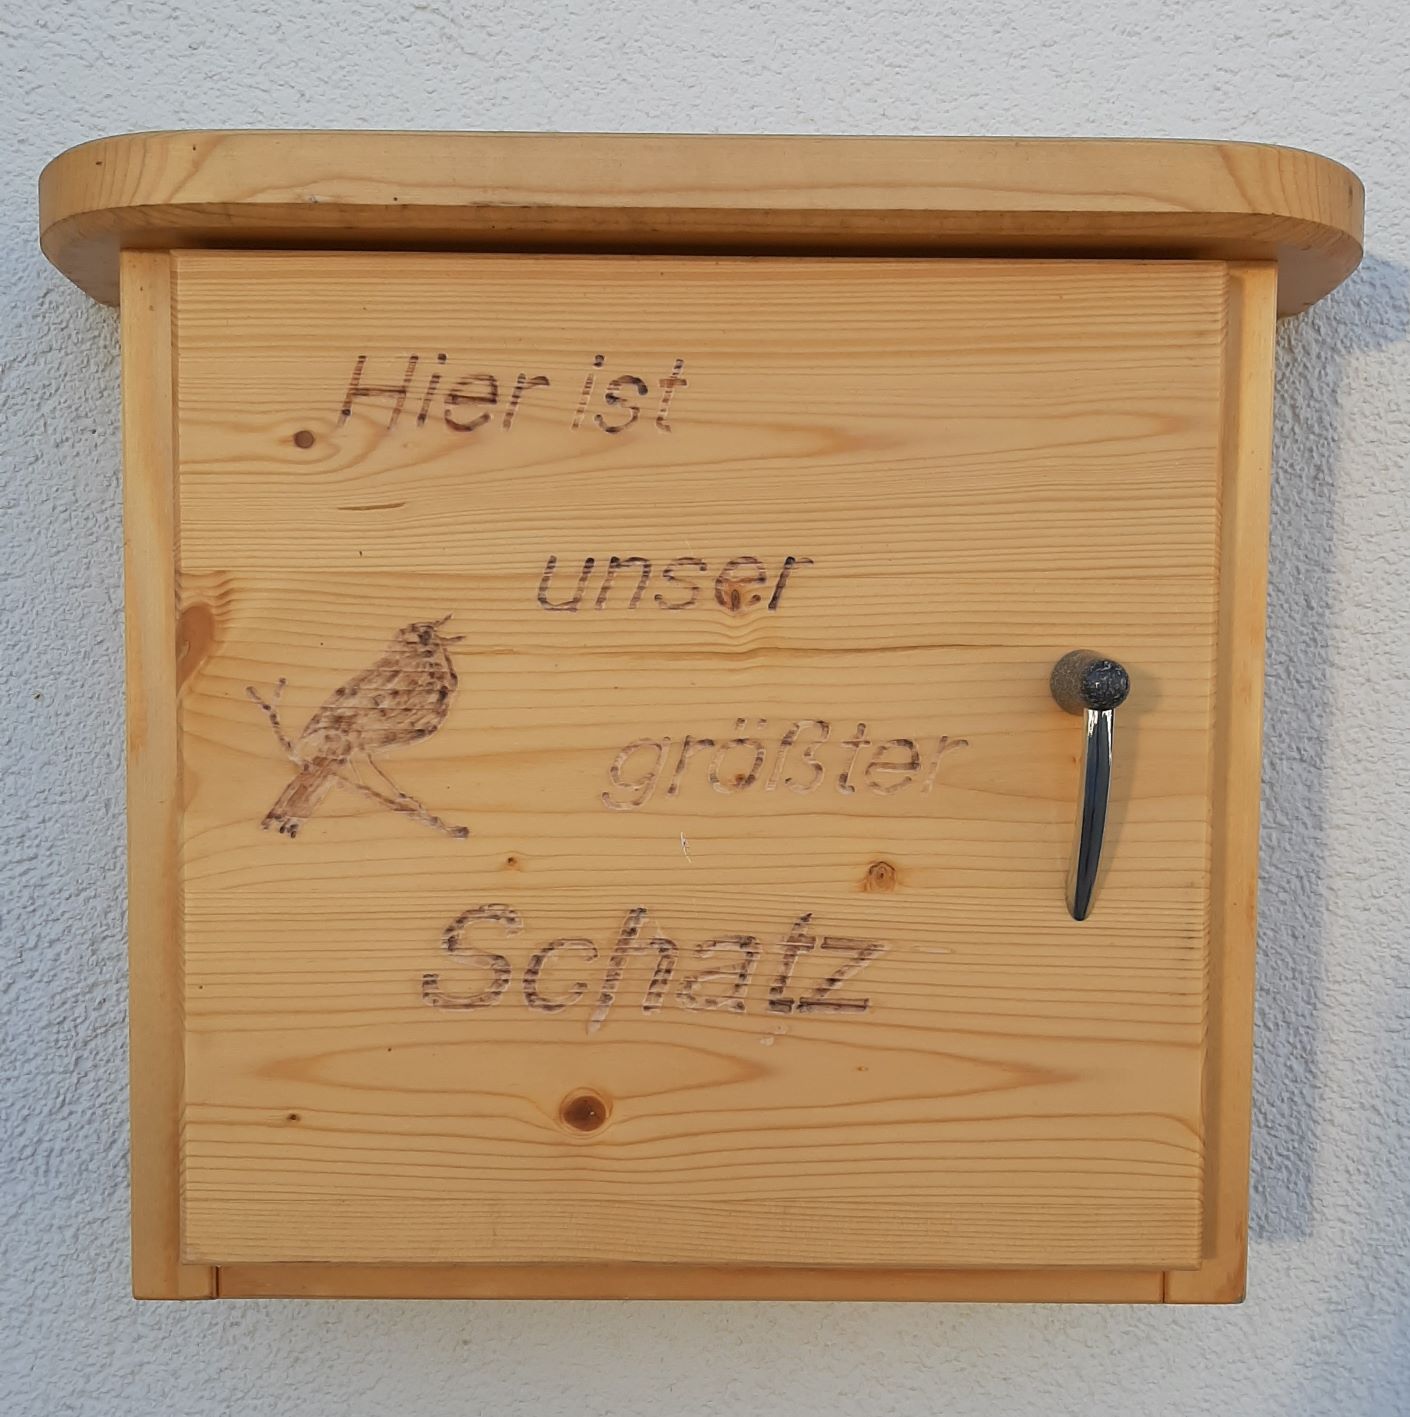 Hier ist
unser
größter
Schatz